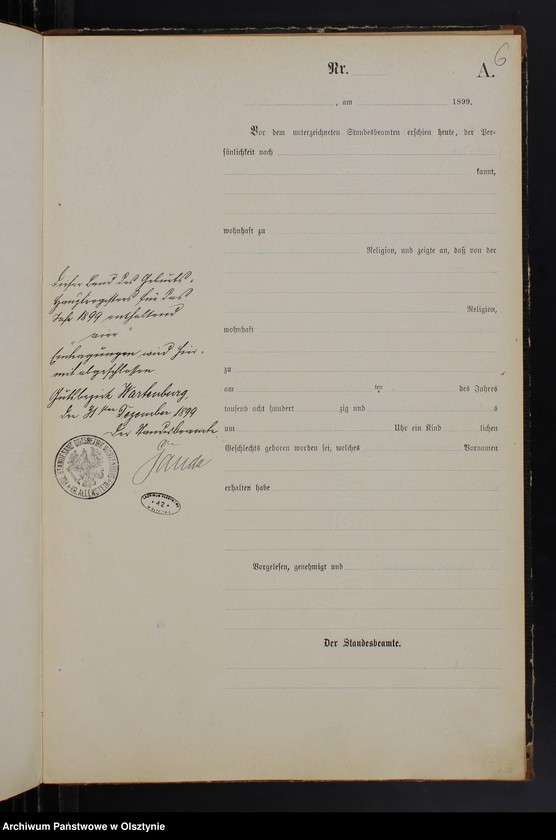 6
Nr.
A.
, am 1899.
Vor dem unterzeichneten Standesbeamten erschien heute, der Per-
sönlichkeit nach
kannt,
wohnhaft zu
Religion, und zeigte an, daß von der
Religion,
wohnhaft
zu
am ten des Jahres
tausend acht hundert zig und s
um Uhr ein Kind lichen
Geschlechts geboren worden sei, welches Vornamen
erhalten habe
Vorgelesen, genehmigt und
Der Standesbeamte.
Dieser Band des Geburts-
Hauptregisters für das
Jahr 1899 enthaltend
"vier"
Eintragungen wird hier-
mit abgeschlossen.
Gutsbezirk Wartenburg,
den 31ten Dezember 1899
Der Standesbeamte.
KR. ALLENSTEIN
* 42 *
Archiwum Państwowe w Olsztynie